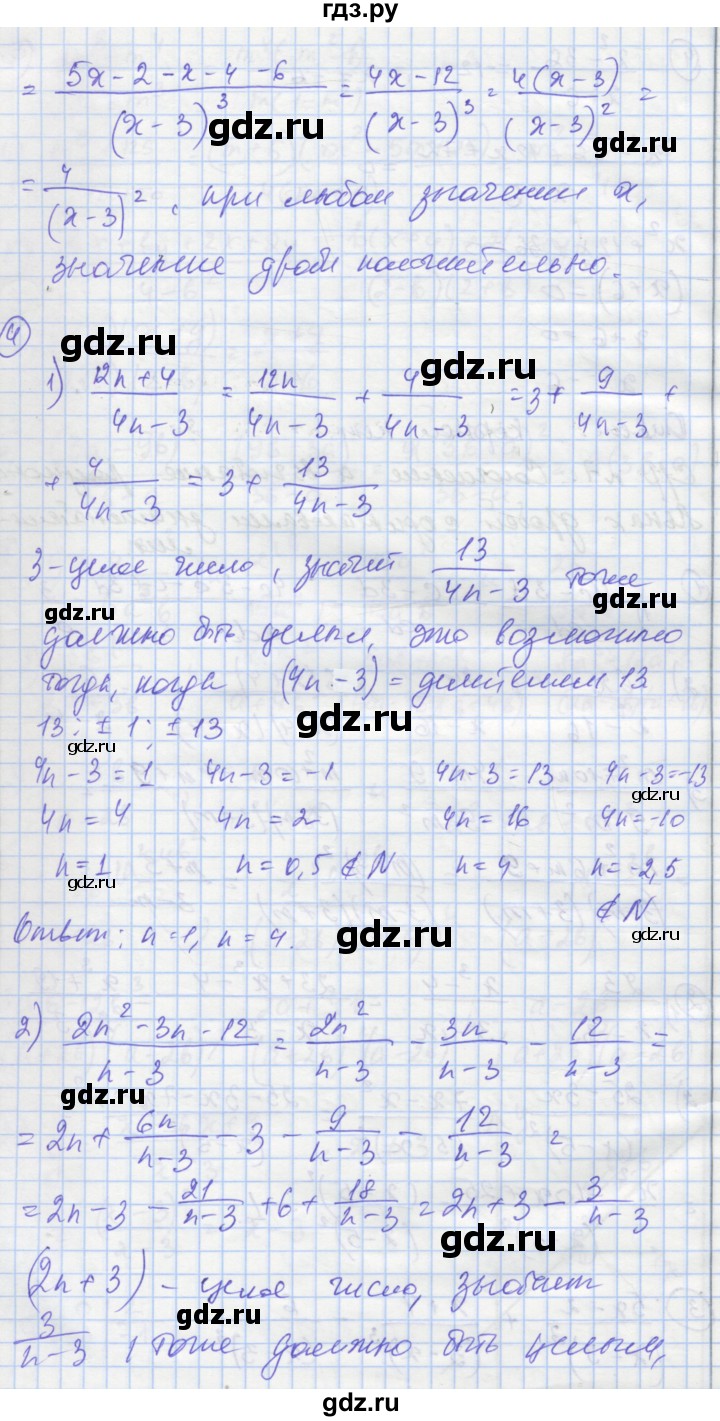 гдз.ру
= (5x - 2 - x - 4 - 6)/(x - 3)^3 = (4x - 12)/(x - 3)^3 = 4(x - 3)/(x - 3)^2 =
gdz.ru
gdz.ru
= 4/(x-3)^2, при любом значении x,
значение дроби положительно.
4
gdz.ru
gdz.ru
1) (12n + 4)/(4n - 3) = 12n/(4n - 3) + 4/(4n - 3) = 3 + 9/(4n - 3) +
+ 4/(4n - 3) = 3 + 13/(4n - 3)
3 - целое число, значит 13/(4n - 3) тоже
gdz.ru
gdz.ru
должно быть целым, это возможно
тогда, когда (4n - 3) = делителем 13
13: ± 1; ± 13
gdz.ru
4n - 3 = 1 4n - 3 = -1 4n - 3 = 13 4n - 3 = -13
gdz.ru
4n = 4 4n = 2 4n = 16 4n = -10
n = 1 n = 0,5 ∉ N n = 4 n = -2,5
gdz.ru
∉ N
Ответ: n = 1, n = 4.
gdz.ru
gdz.ru
2) (2n^2 - 3n - 12)/(n - 3) = 2n^2/(n - 3) - 3n/(n - 3) - 12/(n - 3) =
gdz.ru
gdz.ru
= 2n + 6n/(n - 3) - 3 - 9/(n - 3) - 12/(n - 3) =
= 2n - 3 - 21/(n - 3) + 6 + 18/(n - 3) = 2n + 3 - 3/(n - 3)
gdz.ru
(2n + 3) - целое число, значит
gdz.ru
3/(n - 3), тоже должно быть целым,
gdz.ru
gdz.ru